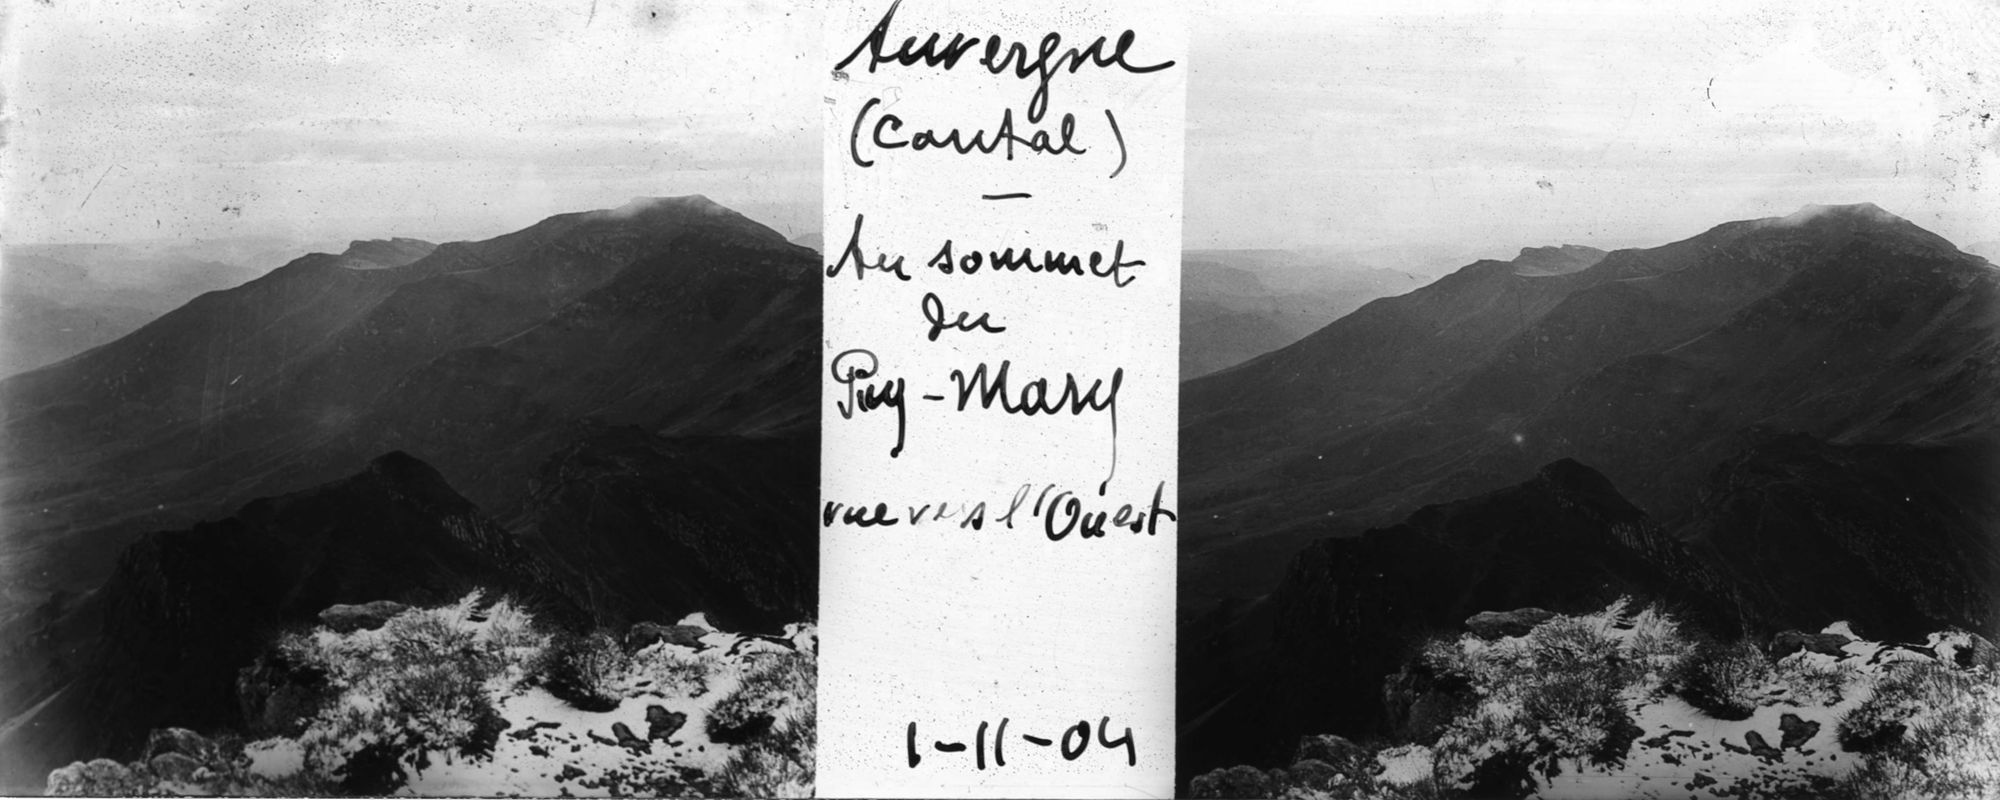 Auvergne
(Cantal)
—
Au sommet
du
Puy-Mary
vue vers l'Ouest
1-11-04